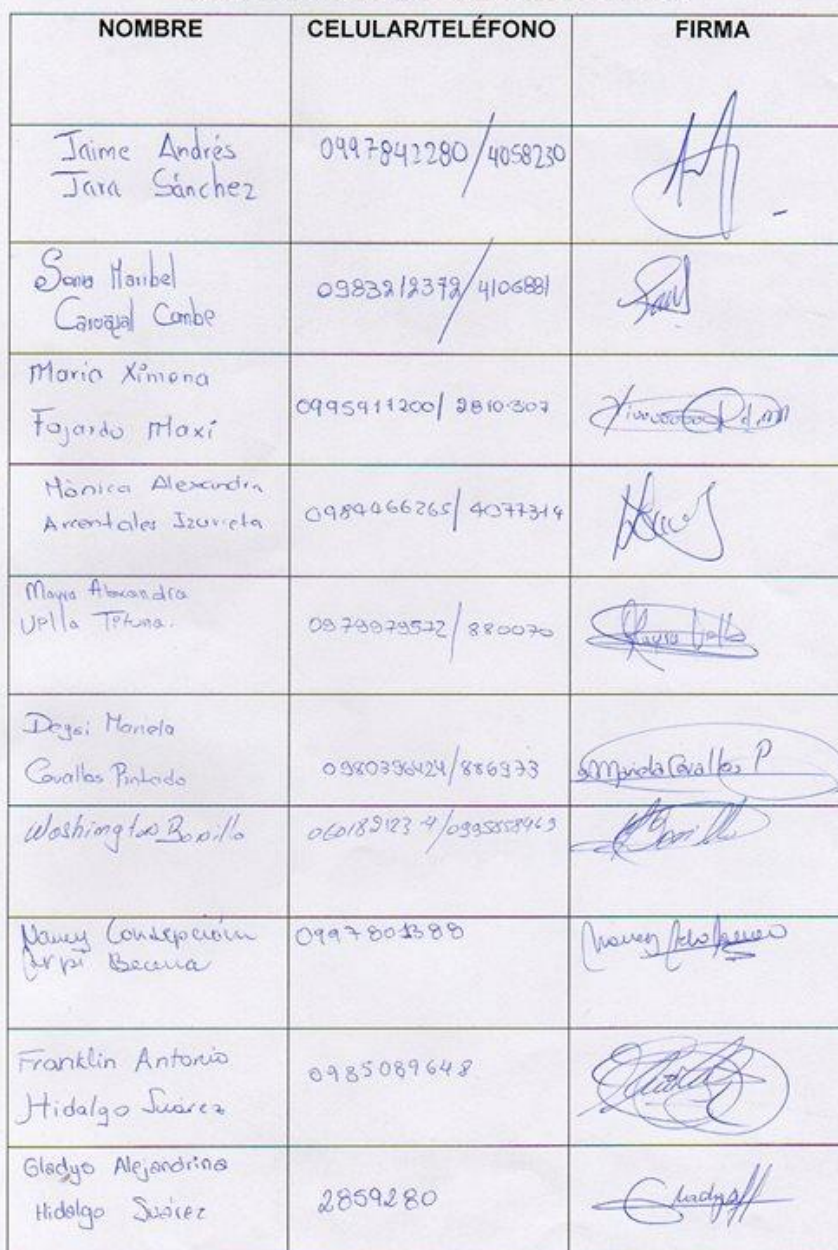 NOMBRE CELULAR/TELÉFONO FIRMA
Jaime Andrés
Jara Sánchez
0997842280/4058230
Maribel
0983212372/4106881
Maria Ximena
Fajardo Maxi
0995911200/2810307
Mónica Alexandra
Arcentales Izurieta
0984466265/4077314
Alexandra
0979979572/880070
Mariela
Cavallos Pintado
0980396424/886973
Mariela Cavallos P
Washington Bonilla
060182123-4/0995558463
Nancy Concepción
0997801388
Franklin Antonio
Hidalgo Suárez
0985089648
Gladys Alejandrina
Hidalgo Suárez
2859280